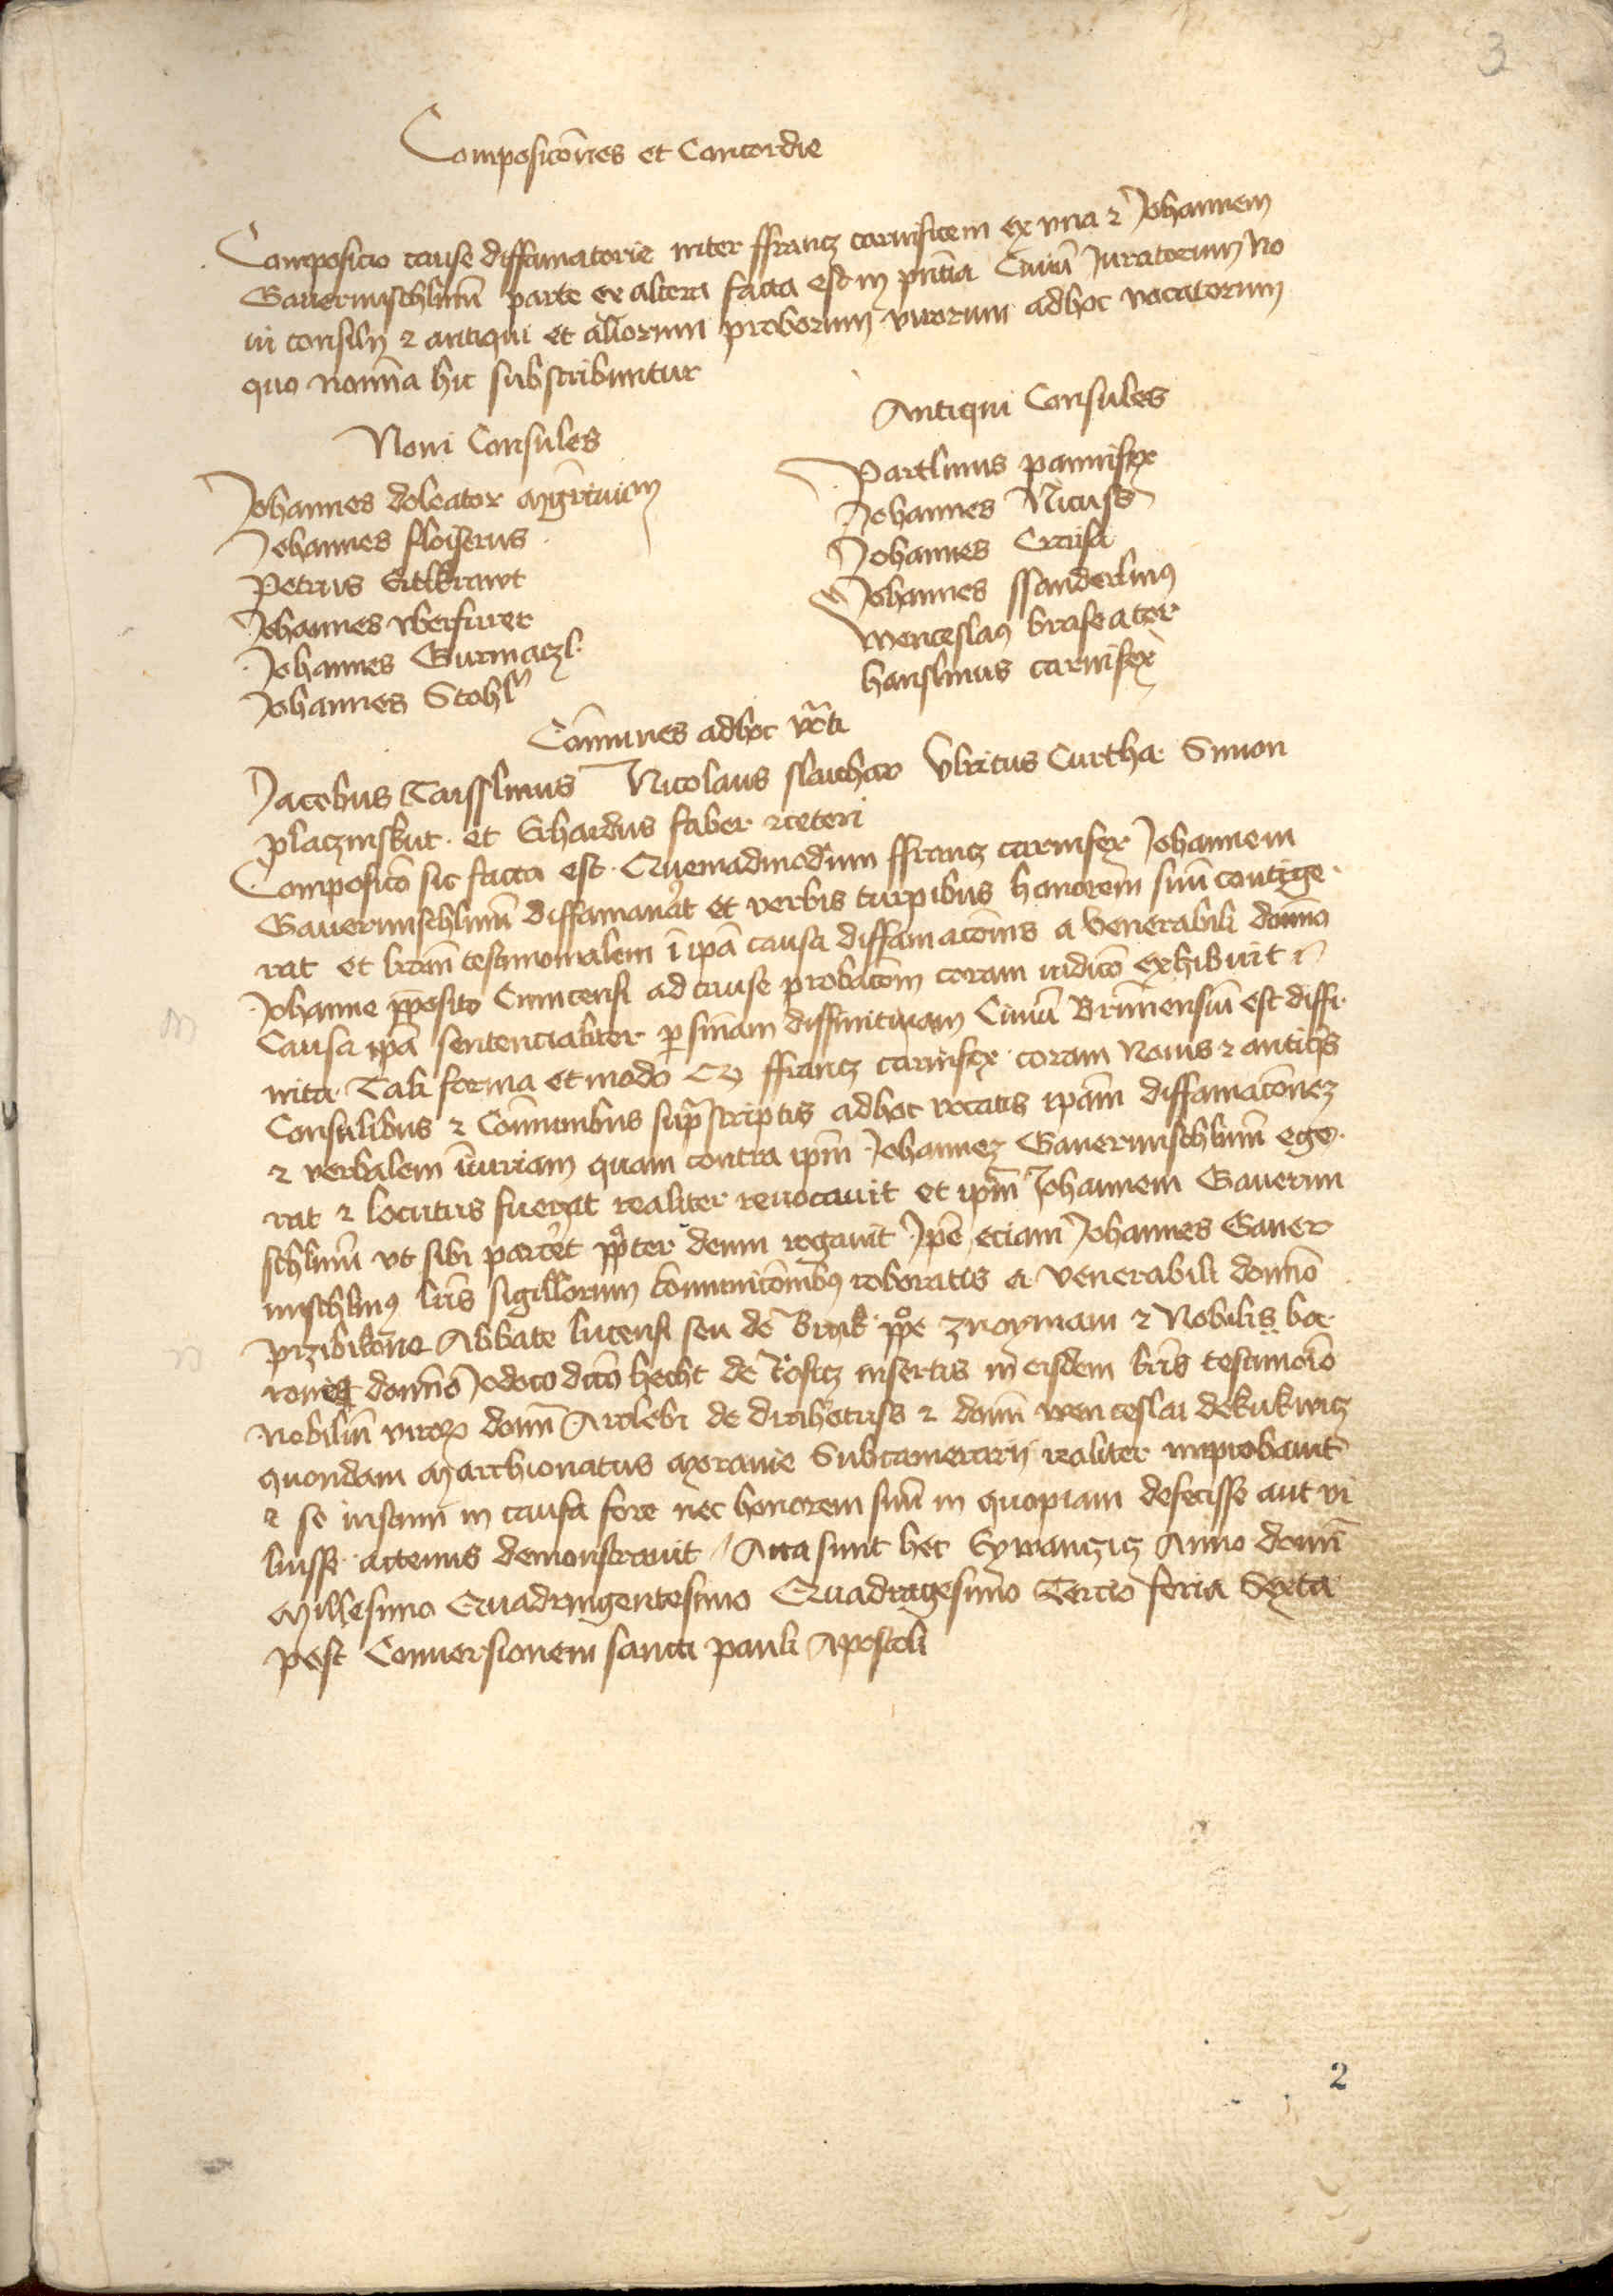 3
Composicōnes et Concordie
Composicio cause diffamatorie inter ffrancz carnificem ex vna ⁊ Johannem
Gauernuschlinū parte ex altera facta est in pñtia Ciuiū Juratorum No
ui consilij ⁊ antiqui et aliorum proborum virorum adhoc vocatorum
quo nomīa hic subscribuntur
Noui Consules
Johannes doleator mgrciuium
Johannes floiserus
Petrus Eitlkrawt
Johannes wbersurer
Johannes Gurmaczl
Johannes Stohl
Antiqui Consules
Partlinus pannifex
Johannes Nicuss
Johannes Craisa
Johannes ssanderlinꝰ
wenceslaꝰ braseator
hanslinus carnifex
Cōmunes adhoc vocāti
Jacobus Taisslinus Nicolaus slaichar Vlricus Curtha Simon
placzinskut et Erhardus faber ⁊ceteri
Composicō sic facta est Quemadmodum ffrancz carnifex Johannem
Gauernuschlinū diffamauāt et verbis turpibus honorem suū contige
rat et lrām testimonialem ī ipā causa diffamacōnis a venerabili domīo
Johanne p̄posito Cunicensi ad cause probacōm coram iudicō exhibuit ⁊
Causa ipā sentencialiter ꝑ sniam diffinitiuam Ciuiū Brunnensiū est diffi
nita Tali forma et modo Qꝫ ffrancz carnifex coram Nouis ⁊ antiqꝫs
Consulibus ⁊ Cōmunibus supͣscriptis adhoc vocatis ipām diffamacōnez
⁊ verbalem iniuriam quam contra ipm̄ Johannez Gauernuschlinū ege
rat ⁊ locutus fuerat realiter reuocauit et ipm̄ Johannem Gauernu
schlinū vt sibi parcet ꝓpter deum rogauit Ipe eciam Johannes Gauer
nuschlinꝰ lrīs sigillorum cōmunicōnibꝰ roboratis a venerabili domīo
przibikone Abbate lucensi seu de Bruk ꝓpe znoymam ⁊ Nobilis ba
rone domīo Jodoco dicto hecht de Rosicz insertis in eisdem lrīs testimoīo
Nobiliū viroꝝ domī Artlebi de drahotuss ⁊ domī wenceslai de kukwicz
quondam Marchionatus Morauie Subcamerarij realiter improbauit
⁊ se iustum in causa fore nec honorem suū in quopiam defecisse aut vi
luisse actenus demonstrauit / Acta sunt hec Eywanczicz Anno domī
Millesimo Quadringentesimo Quadragesimo Tercio feria Sexta
post Conuersionem sancti pauli Apostoli
2